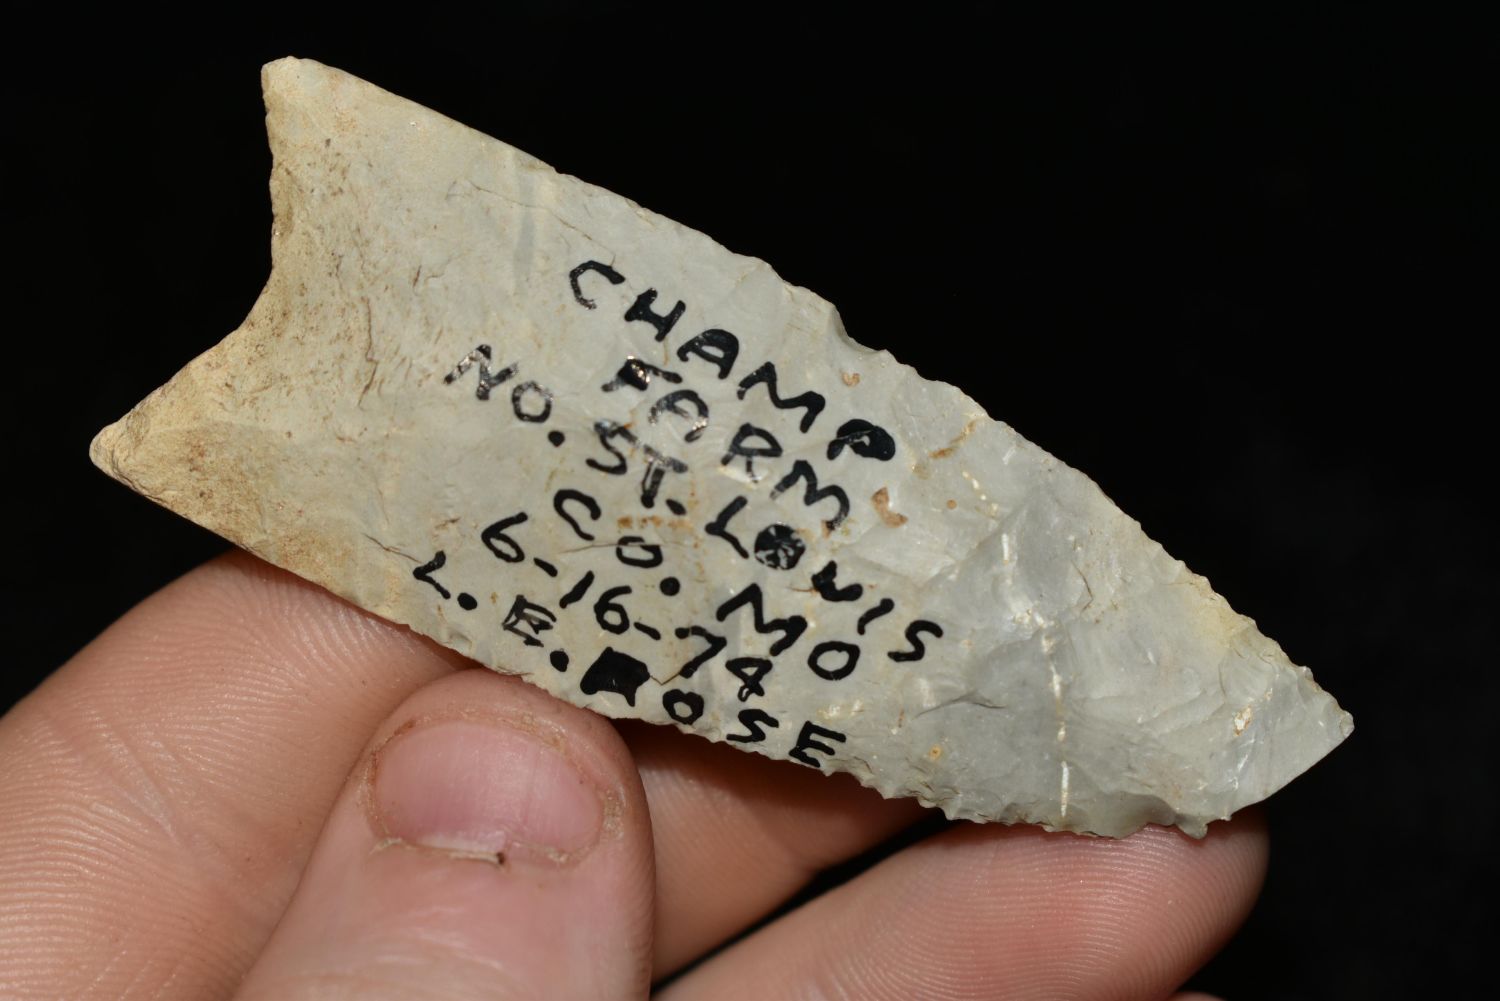 CHAMP
FARM
NO. ST. LOUIS
CO. MO
6-16-74
L. E. ROSE